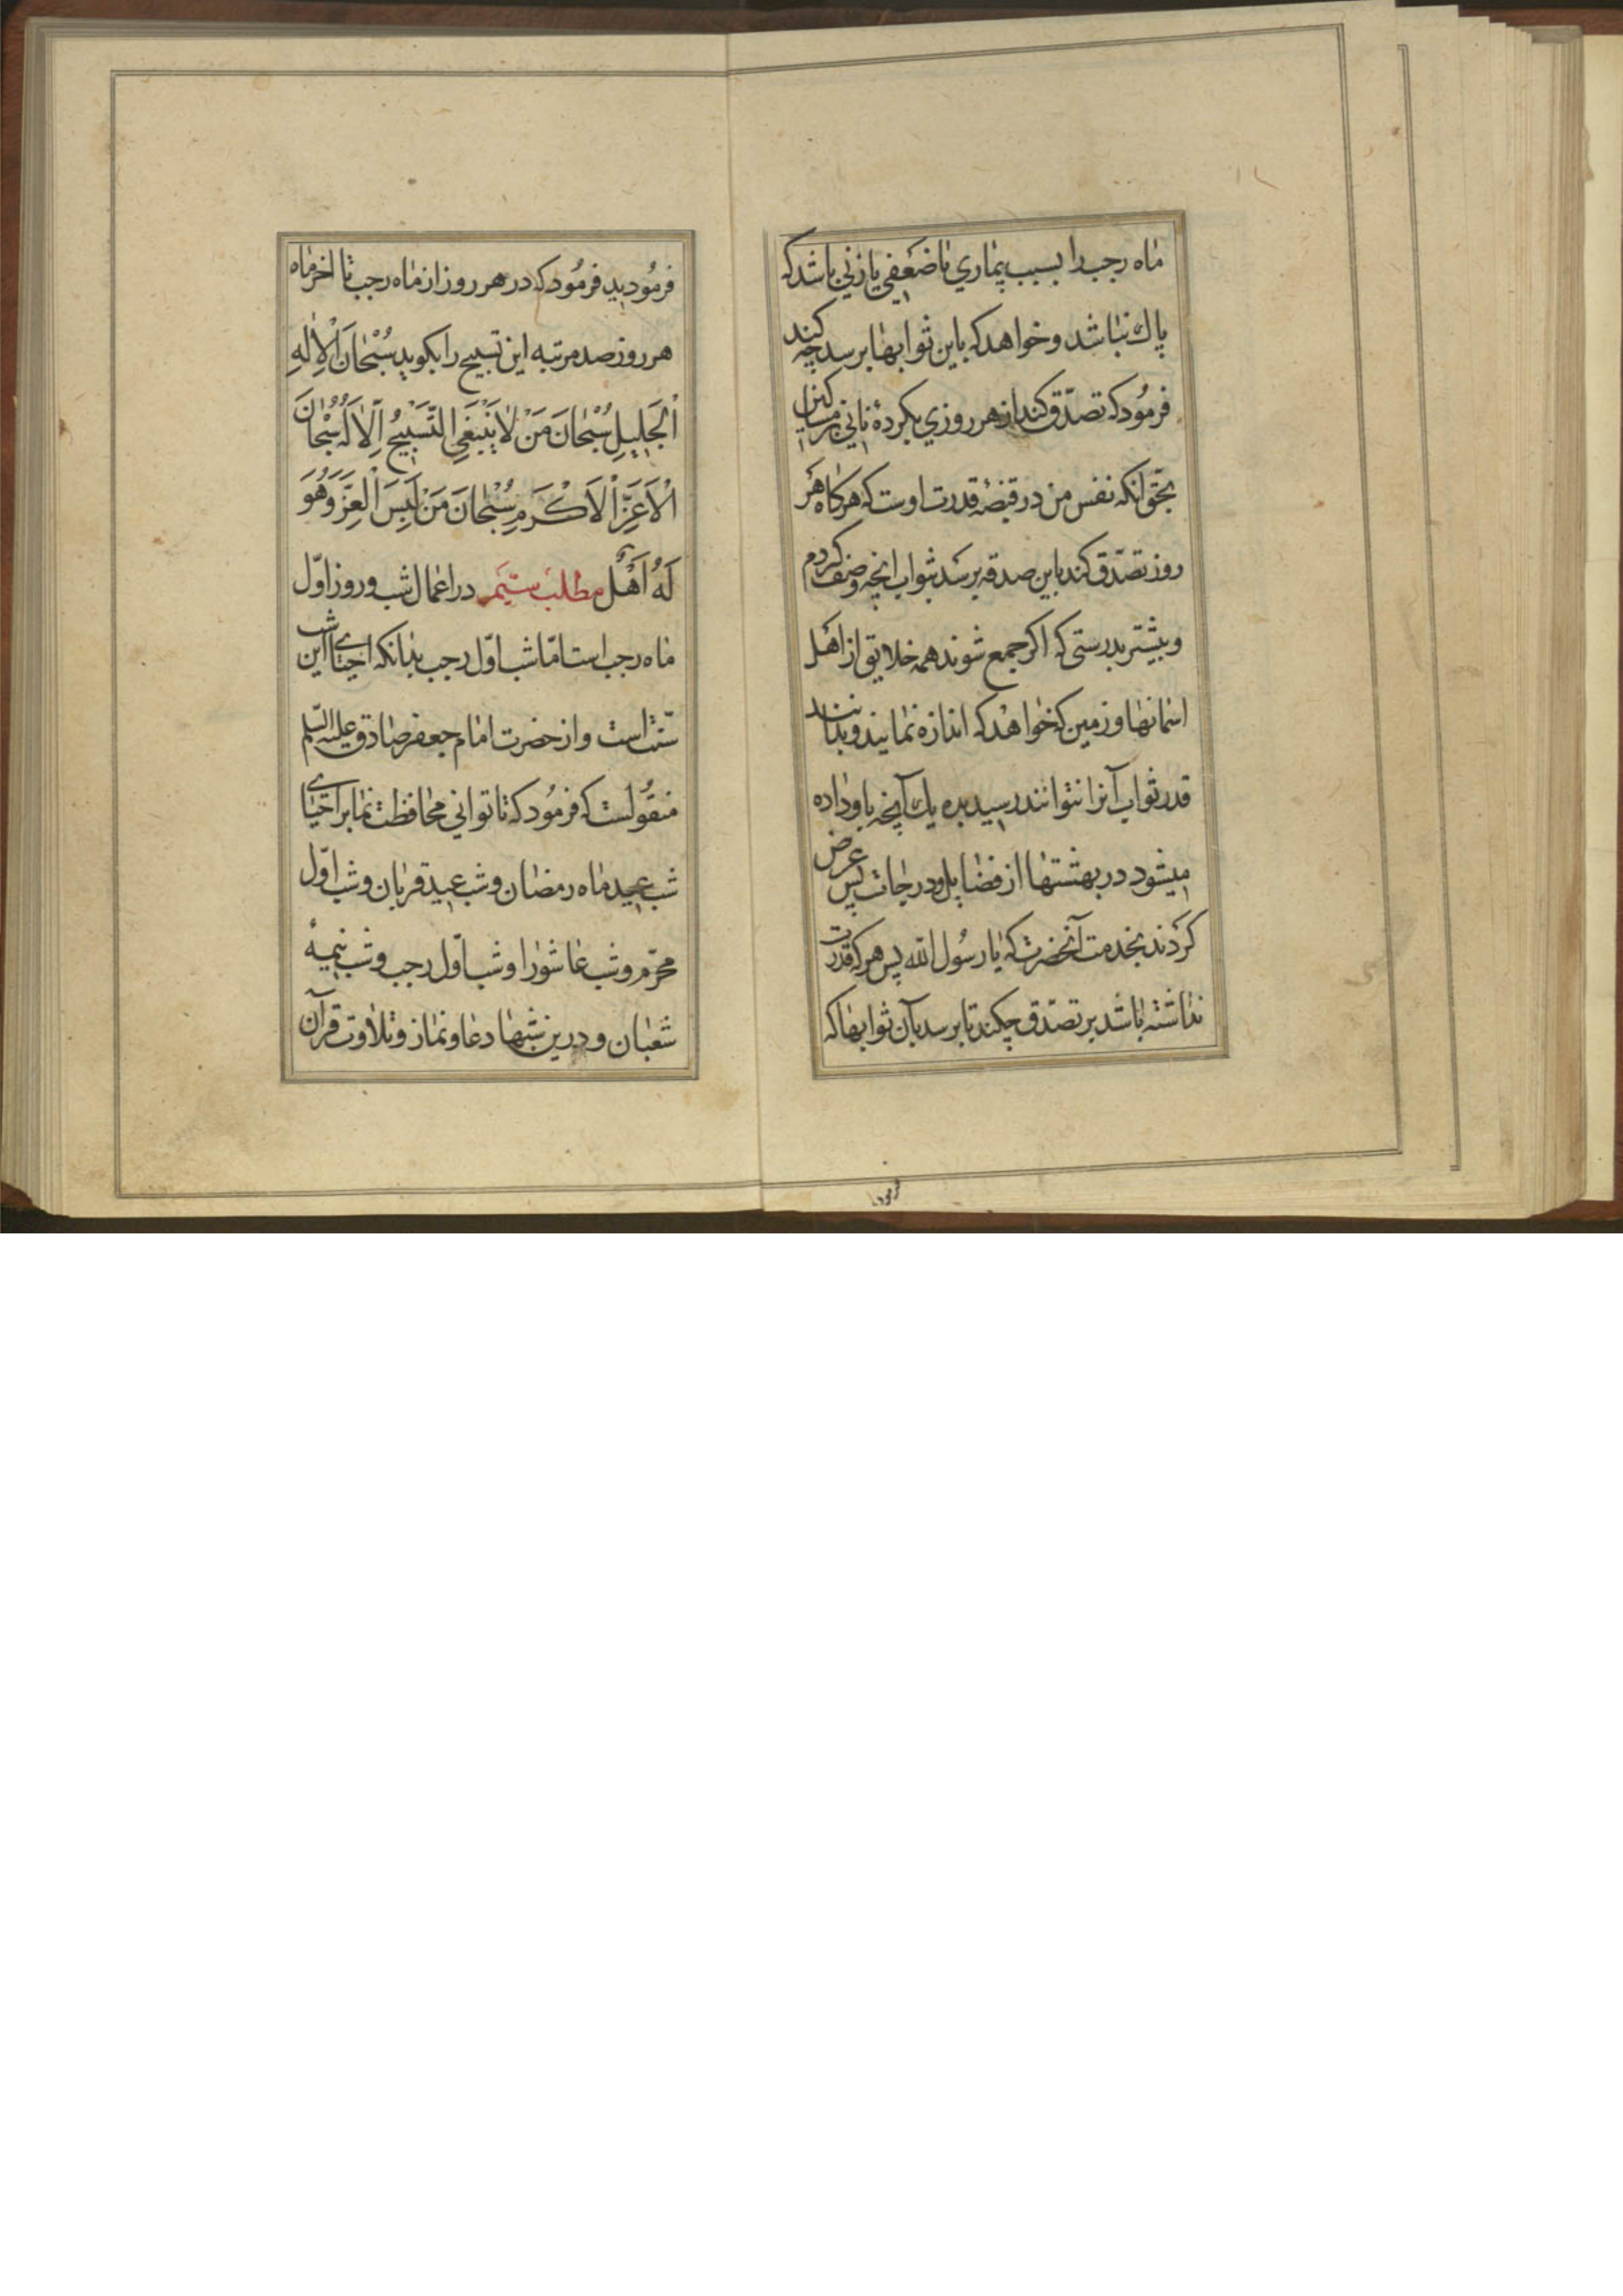 ماه رجب را بسبب بیماری یا ضعفی یا زنی باشد که
پاك نباشد و خواهد که باین ثوابها برسد چه کند
فرمُود که تصدّق کند از هر روزی بکردهٔ نانی بر مساکین
بحقّ انکه نفس من در قبضهٔ قدرت اوست که هرکاه هر
روز تصدّق کند باین صدقه برسد بثواب انچه وصف کردم
و بیشتر بدرستی که اکر جمع شوند همه خلایق از اهل
اسمانها و زمین که خواهند که اندازه نمایند و بدانند
قدر ثواب آنرا نتوانند رسید بده یك آنچه باو داده
میشود در بهشتها از فضایل و درجات پس عرض
کردند بخدمت آنحضرت که یا رسُول الله پس هر که قدرت
نداشته باشد بر تصدّق چکند تا برسد بآن ثوابها که
فرمودید
فرمُودید فرمُود که در هر روز از ماه رجب تا اخر ماه
هر روز صد مرتبه این تسبیح را بکوید سُبْحَانَ الْاِلٰهِ
الْجَلِیلِ سُبْحَانَ مَنْ لَا یَنْبَغِی التَّسْبِیحُ اِلَّا لَهُ سُبْحَانَ
الْاَعَزِّ الْاَکْرَمِ سُبْحَانَ مَنْ لَبِسَ الْعِزَّ وَهُوَ
لَهُ اَهْلٌ مطلب سیّم در اعمال شب و روز اوّل
ماه رجب است امّا شب اوّل رجب بدانکه احیای این شب
سنّت است و از حضرت امام جعفر صادق علیه السّلم
منقُولست که فرمُود که تا توانی محافظت نما بر احیای
شب عید ماه رمضان و شب عید قربان و شب اوّل
محرّم و شب عاشورا و شب اوّل رجب و شب نیمهٔ
شعبان و درین شبها دعا و نماز و تلاوت قرآن